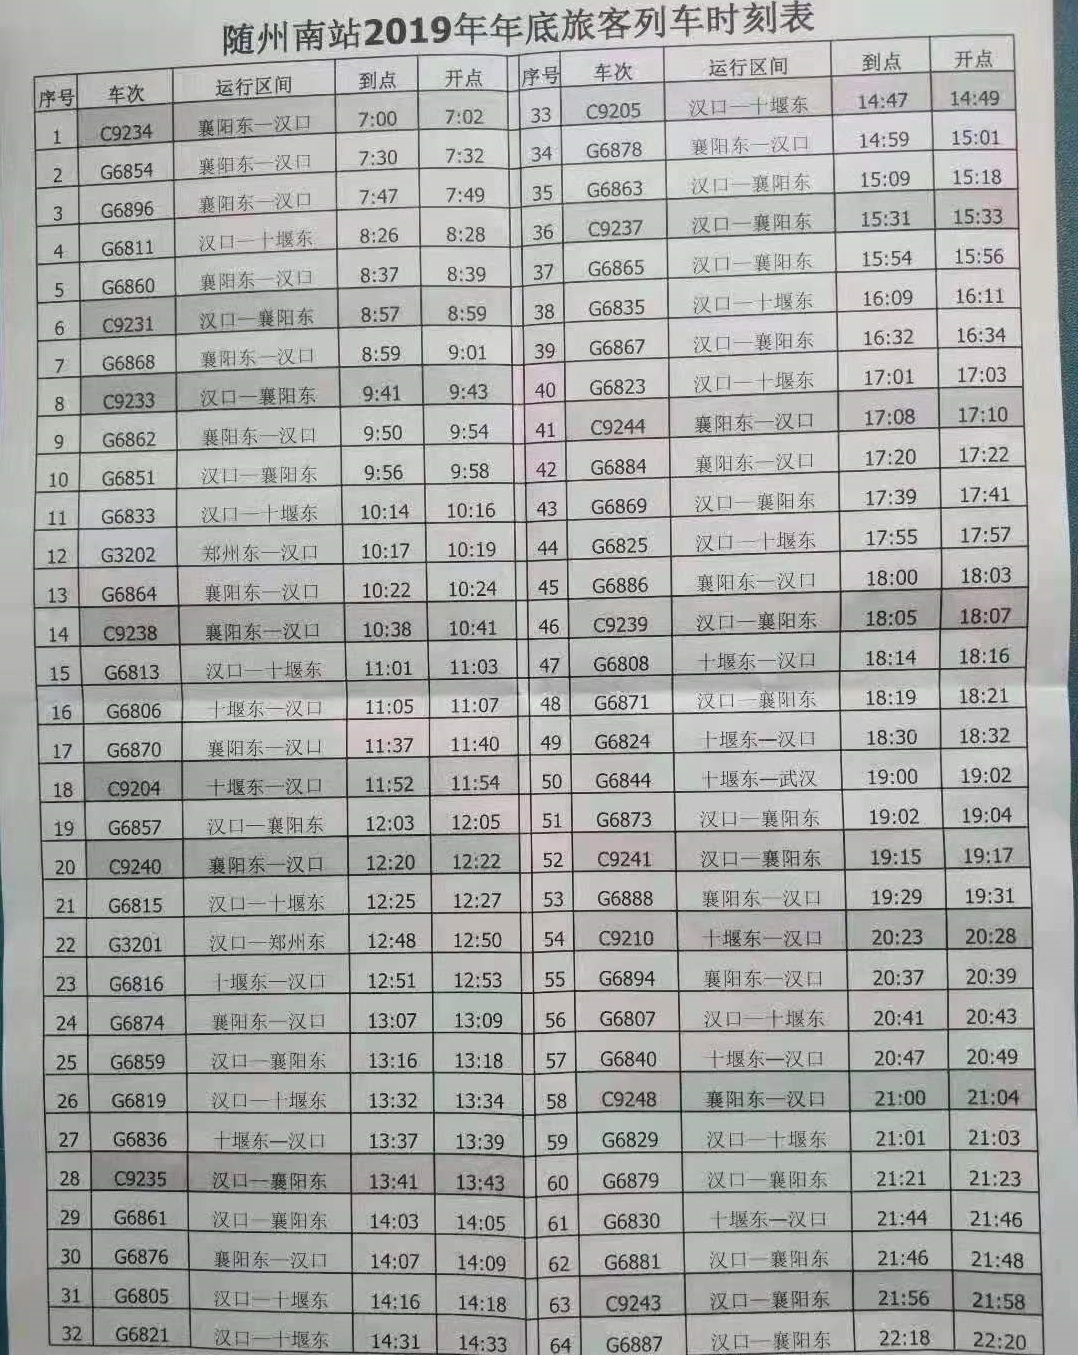 随州南站2019年年底旅客列车时刻表
序号 车次 运行区间 到点 开点 序号 车次 运行区间 到点 开点
1 C9234 襄阳东—汉口 7:00 7:02 33 C9205 汉口—十堰东 14:47 14:49
2 G6854 襄阳东—汉口 7:30 7:32 34 G6878 襄阳东—汉口 14:59 15:01
3 G6896 襄阳东—汉口 7:47 7:49 35 G6863 汉口—襄阳东 15:09 15:18
4 G6811 汉口—十堰东 8:26 8:28 36 C9237 汉口—襄阳东 15:31 15:33
5 G6860 襄阳东—汉口 8:37 8:39 37 G6865 汉口—襄阳东 15:54 15:56
6 C9231 汉口—襄阳东 8:57 8:59 38 G6835 汉口—十堰东 16:09 16:11
7 G6868 襄阳东—汉口 8:59 9:01 39 G6867 汉口—襄阳东 16:32 16:34
8 C9233 汉口—襄阳东 9:41 9:43 40 G6823 汉口—十堰东 17:01 17:03
9 G6862 襄阳东—汉口 9:50 9:54 41 C9244 襄阳东—汉口 17:08 17:10
10 G6851 汉口—襄阳东 9:56 9:58 42 G6884 襄阳东—汉口 17:20 17:22
11 G6833 汉口—十堰东 10:14 10:16 43 G6869 汉口—襄阳东 17:39 17:41
12 G3202 郑州东—汉口 10:17 10:19 44 G6825 汉口—十堰东 17:55 17:57
13 G6864 襄阳东—汉口 10:22 10:24 45 G6886 襄阳东—汉口 18:00 18:03
14 C9238 襄阳东—汉口 10:38 10:41 46 C9239 汉口—襄阳东 18:05 18:07
15 G6813 汉口—十堰东 11:01 11:03 47 G6808 十堰东—汉口 18:14 18:16
16 G6806 十堰东—汉口 11:05 11:07 48 G6871 汉口—襄阳东 18:19 18:21
17 G6870 襄阳东—汉口 11:37 11:40 49 G6824 十堰东—汉口 18:30 18:32
18 C9204 十堰东—汉口 11:52 11:54 50 G6844 十堰东—武汉 19:00 19:02
19 G6857 汉口—襄阳东 12:03 12:05 51 G6873 汉口—襄阳东 19:02 19:04
20 C9240 襄阳东—汉口 12:20 12:22 52 C9241 汉口—襄阳东 19:15 19:17
21 G6815 汉口—十堰东 12:25 12:27 53 G6888 襄阳东—汉口 19:29 19:31
22 G3201 汉口—郑州东 12:48 12:50 54 C9210 十堰东—汉口 20:23 20:28
23 G6816 十堰东—汉口 12:51 12:53 55 G6894 襄阳东—汉口 20:37 20:39
24 G6874 襄阳东—汉口 13:07 13:09 56 G6807 汉口—十堰东 20:41 20:43
25 G6859 汉口—襄阳东 13:16 13:18 57 G6840 十堰东—汉口 20:47 20:49
26 G6819 汉口—十堰东 13:32 13:34 58 C9248 襄阳东—汉口 21:00 21:04
27 G6836 十堰东—汉口 13:37 13:39 59 G6829 汉口—十堰东 21:01 21:03
28 C9235 汉口—襄阳东 13:41 13:43 60 G6879 汉口—襄阳东 21:21 21:23
29 G6861 汉口—襄阳东 14:03 14:05 61 G6830 十堰东—汉口 21:44 21:46
30 G6876 襄阳东—汉口 14:07 14:09 62 G6881 汉口—襄阳东 21:46 21:48
31 G6805 汉口—十堰东 14:16 14:18 63 C9243 汉口—襄阳东 21:56 21:58
32 G6821 汉口—十堰东 14:31 14:33 64 G6887 汉口—襄阳东 22:18 22:20